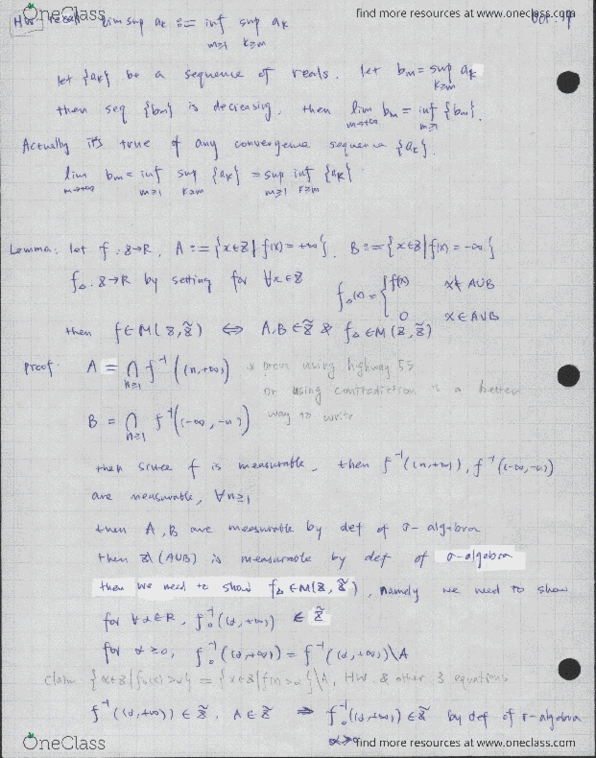 OneClass
find more resources at www.oneclass.com
HW recall limsup aₖ := inf sup aₖ
m≥1 k≥m
let {aₖ} be a sequence of reals. let bₘ = sup aₖ
k≥m
then seq {bₘ} is decreasing, then lim bₘ = inf {bₘ}.
m→+∞ m≥1
Actually it's true of any convergence sequence {aₖ}.
lim bₘ = inf sup {aₖ} = sup inf {aₖ}
m→+∞ m≥1 k≥m m≥1 k≥m
Lemma: let f: 8→R, A := {x∈8 | f(x) = +∞}, B := {x∈8 | f(x) = -∞}
f₀: 8→R by setting for ∀x∈8
f₀(x) = { f(x) x∉ A∪B
0 x∈A∪B
then f∈M(8, 8̃) ⇔ A,B ∈ 8̃ & f₀∈M(8, 8̃)
Proof: A = ⋂ f⁻¹((n,+∞)) * prove using highway 55
n≥1 or using contradiction is a better
B = ⋂ f⁻¹(-∞,-n) way to write
n≥1
then since f is measurable, then f⁻¹(n,+∞), f⁻¹(-∞,-n)
are measurable, ∀n≥1
then A, B are measurable by def of σ-algebra
then 8\(A∪B) is measurable by def of σ-algebra
then we need to show f₀∈M(8, 8̃), namely we need to show
for ∀α∈R, f₀⁻¹((α,+∞)) ∈ 8̃
for α≥0, f₀⁻¹((α,+∞)) = f⁻¹((α,+∞))\A
Claim {x∈8 | f₀(x) >α} = {x∈8 | f(x) >α}\A, HW & other 3 equations
f⁻¹((α,+∞)) ∈ 8̃, A∈8̃ ⇒ f₀⁻¹((α,+∞)) ∈ 8̃ by def of σ-algebra
α≥0
OneClass
find more resources at www.oneclass.com